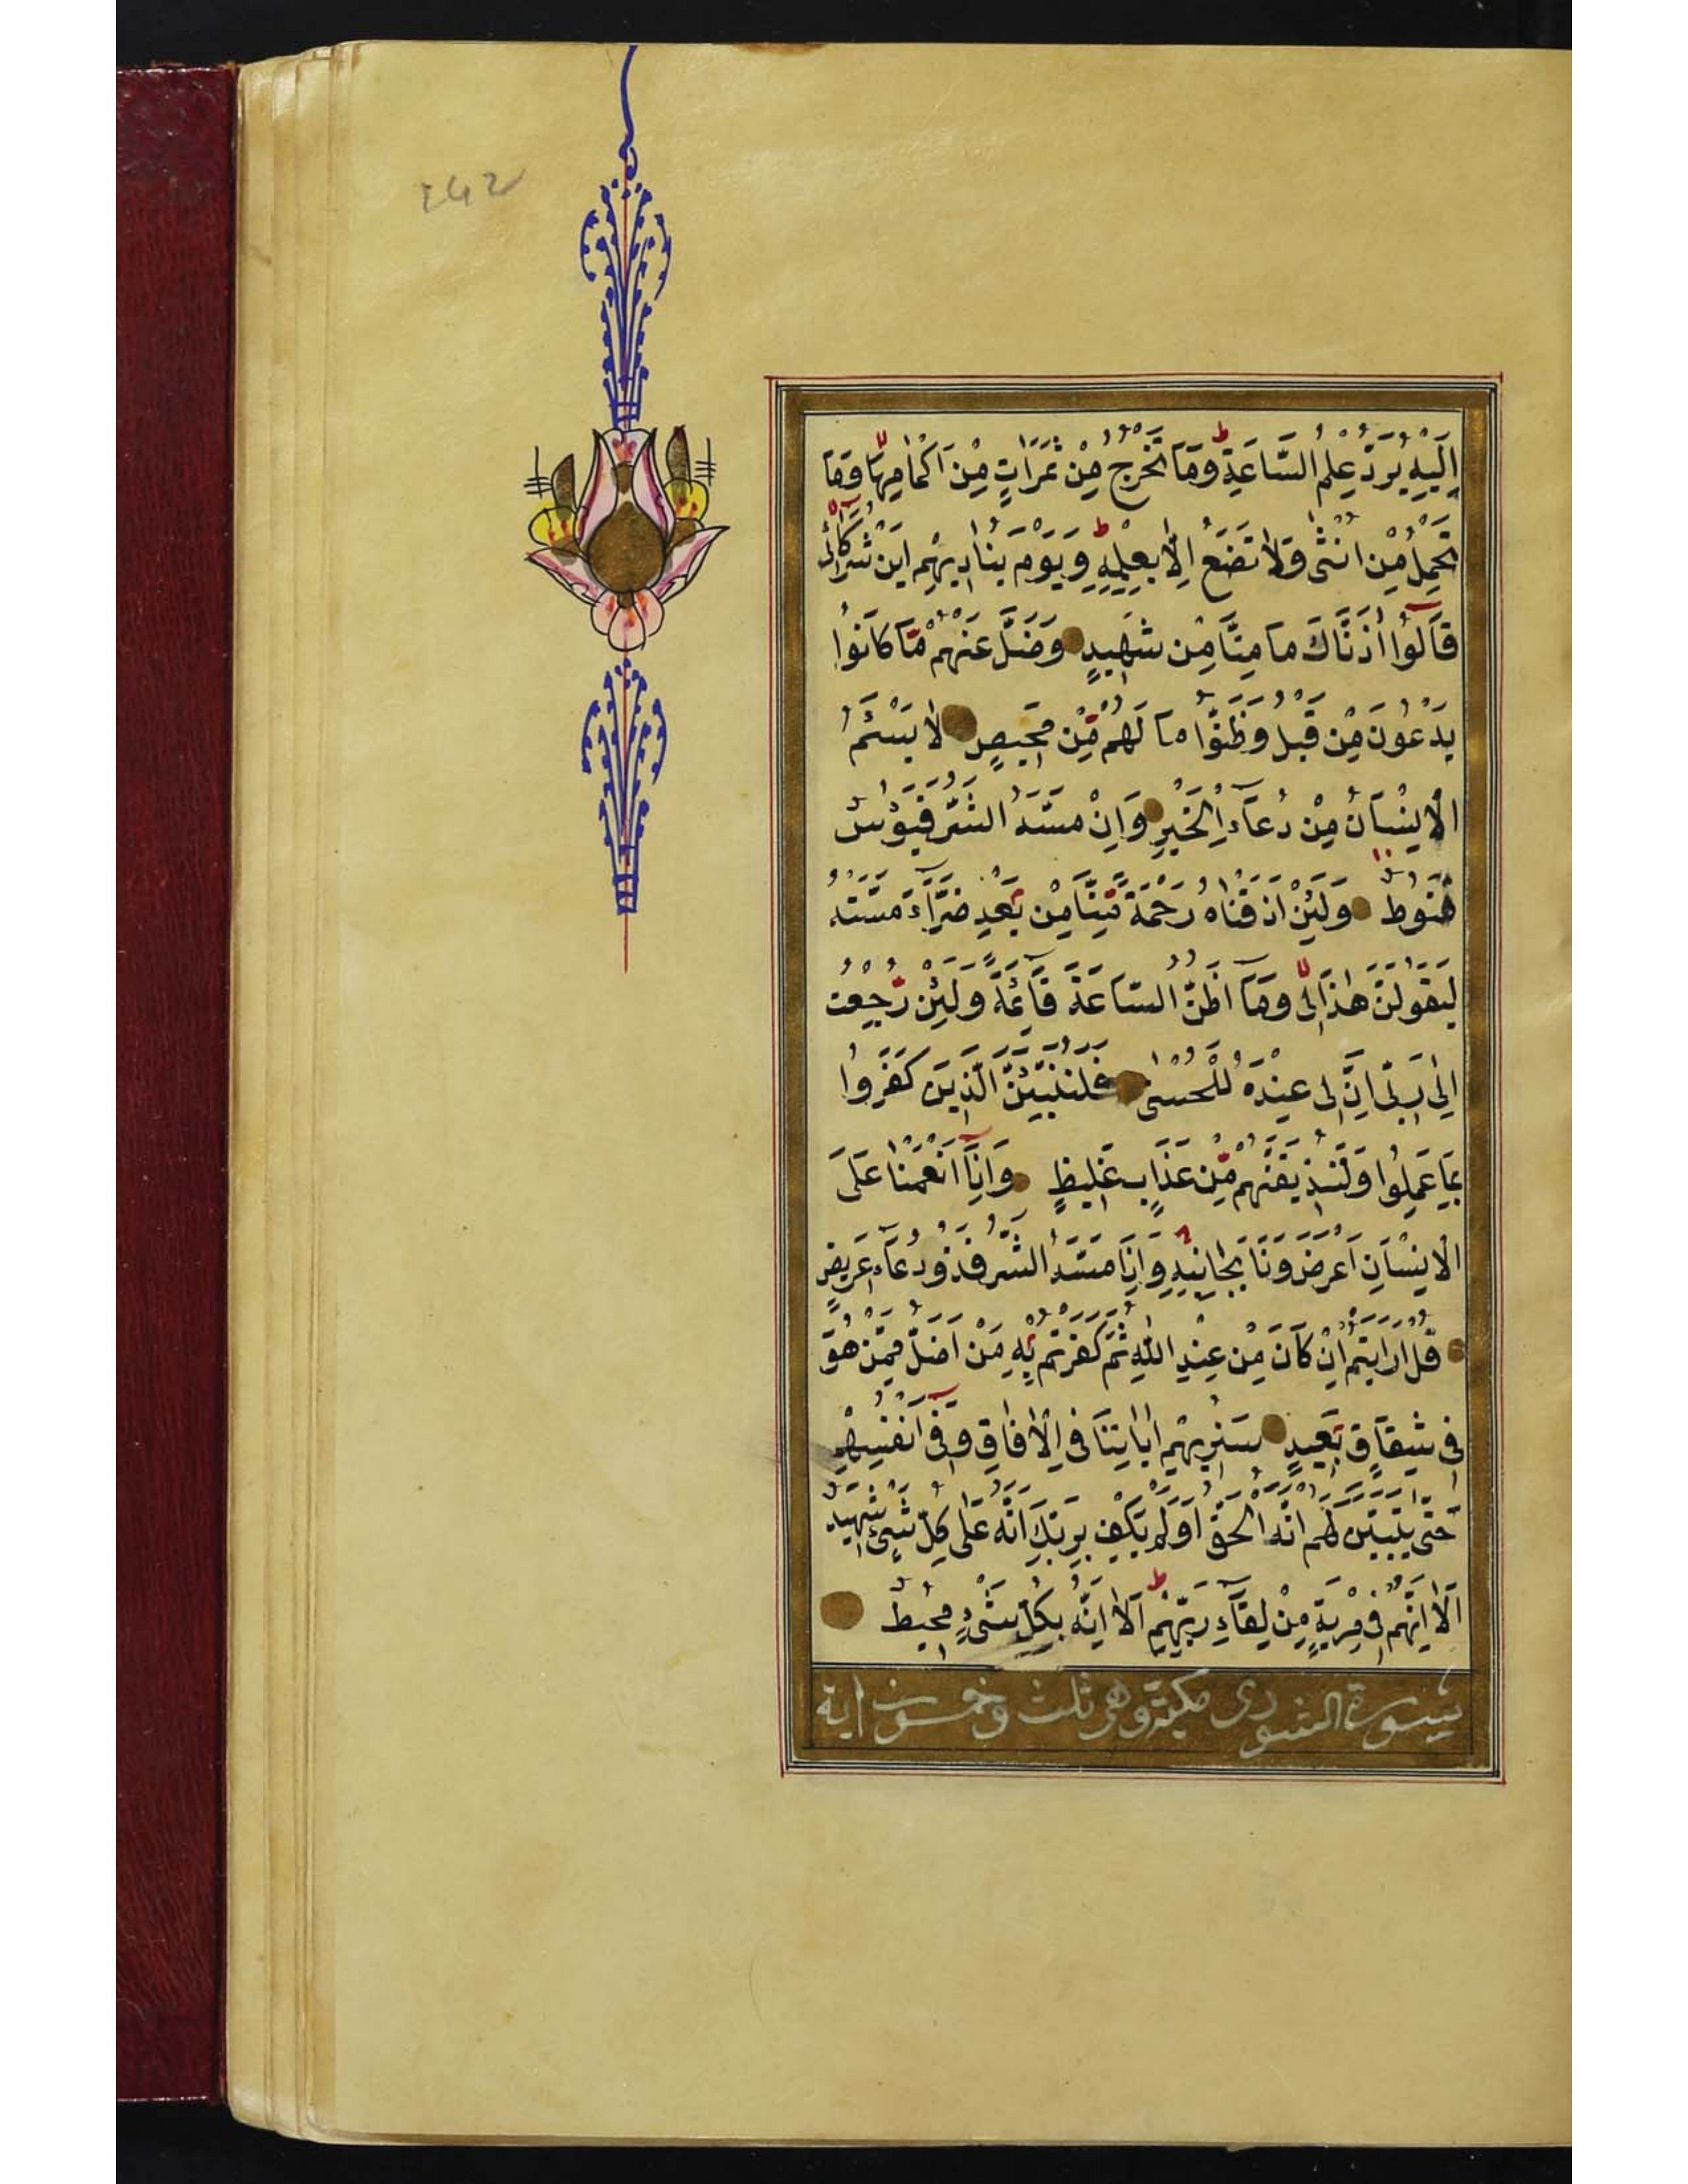 ٢٤٢
اِلَيْهِ يُرَدُّ عِلْمُ السَّاعَةِ وَمَا تَخْرُجُ مِنْ ثَمَرَاتٍ مِنْ اَكْمَامِهَا وَمَا
تَحْمِلُ مِنْ اُنْثٰى وَلَا تَضَعُ اِلَّا بِعِلْمِهِ وَيَوْمَ يُنَادِيهِمْ اَيْنَ شُرَكَآئِى
قَالُوا اٰذَنَّاكَ مَا مِنَّا مِنْ شَهِيدٍ وَضَلَّ عَنْهُمْ مَا كَانُوا
يَدْعُونَ مِنْ قَبْلُ وَظَنُّوا مَا لَهُمْ مِنْ مَحِيصٍ لَا يَسْئَمُ
الْاِنْسَانُ مِنْ دُعَآءِ الْخَيْرِ وَاِنْ مَسَّهُ الشَّرُّ فَيَؤُسٌ
قَنُوطٌ وَلَئِنْ اَذَقْنَاهُ رَحْمَةً مِنَّا مِنْ بَعْدِ ضَرَّآءَ مَسَّتْهُ
لَيَقُولَنَّ هٰذَا لِى وَمَا اَظُنُّ السَّاعَةَ قَآئِمَةً وَلَئِنْ رُجِعْتُ
اِلٰى رَبِّى اِنَّ لِى عِنْدَهُ لَلْحُسْنٰى فَلَنُنَبِّئَنَّ الَّذِينَ كَفَرُوا
بِمَا عَمِلُوا وَلَنُذِيقَنَّهُمْ مِنْ عَذَابٍ غَلِيظٍ وَاِذَا اَنْعَمْنَا عَلَى
الْاِنْسَانِ اَعْرَضَ وَنَاَ بِجَانِبِهِ وَاِذَا مَسَّهُ الشَّرُّ فَذُو دُعَآءٍ عَرِيضٍ
قُلْ اَرَاَيْتُمْ اِنْ كَانَ مِنْ عِنْدِ اللّٰهِ ثُمَّ كَفَرْتُمْ بِهِ مَنْ اَضَلُّ مِمَّنْ هُوَ
فِى شِقَاقٍ بَعِيدٍ سَنُرِيهِمْ اٰيَاتِنَا فِى الْاٰفَاقِ وَفِى اَنْفُسِهِمْ
حَتّٰى يَتَبَيَّنَ لَهُمْ اَنَّهُ الْحَقُّ اَوَلَمْ يَكْفِ بِرَبِّكَ اَنَّهُ عَلٰى كُلِّ شَىْءٍ شَهِيدٌ
اَلَا اِنَّهُمْ فِى مِرْيَةٍ مِنْ لِقَآءِ رَبِّهِمْ اَلَا اِنَّهُ بِكُلِّ شَىْءٍ مُحِيطٌ
سورة الشورى مكية وهى ثلث وخمسون اية